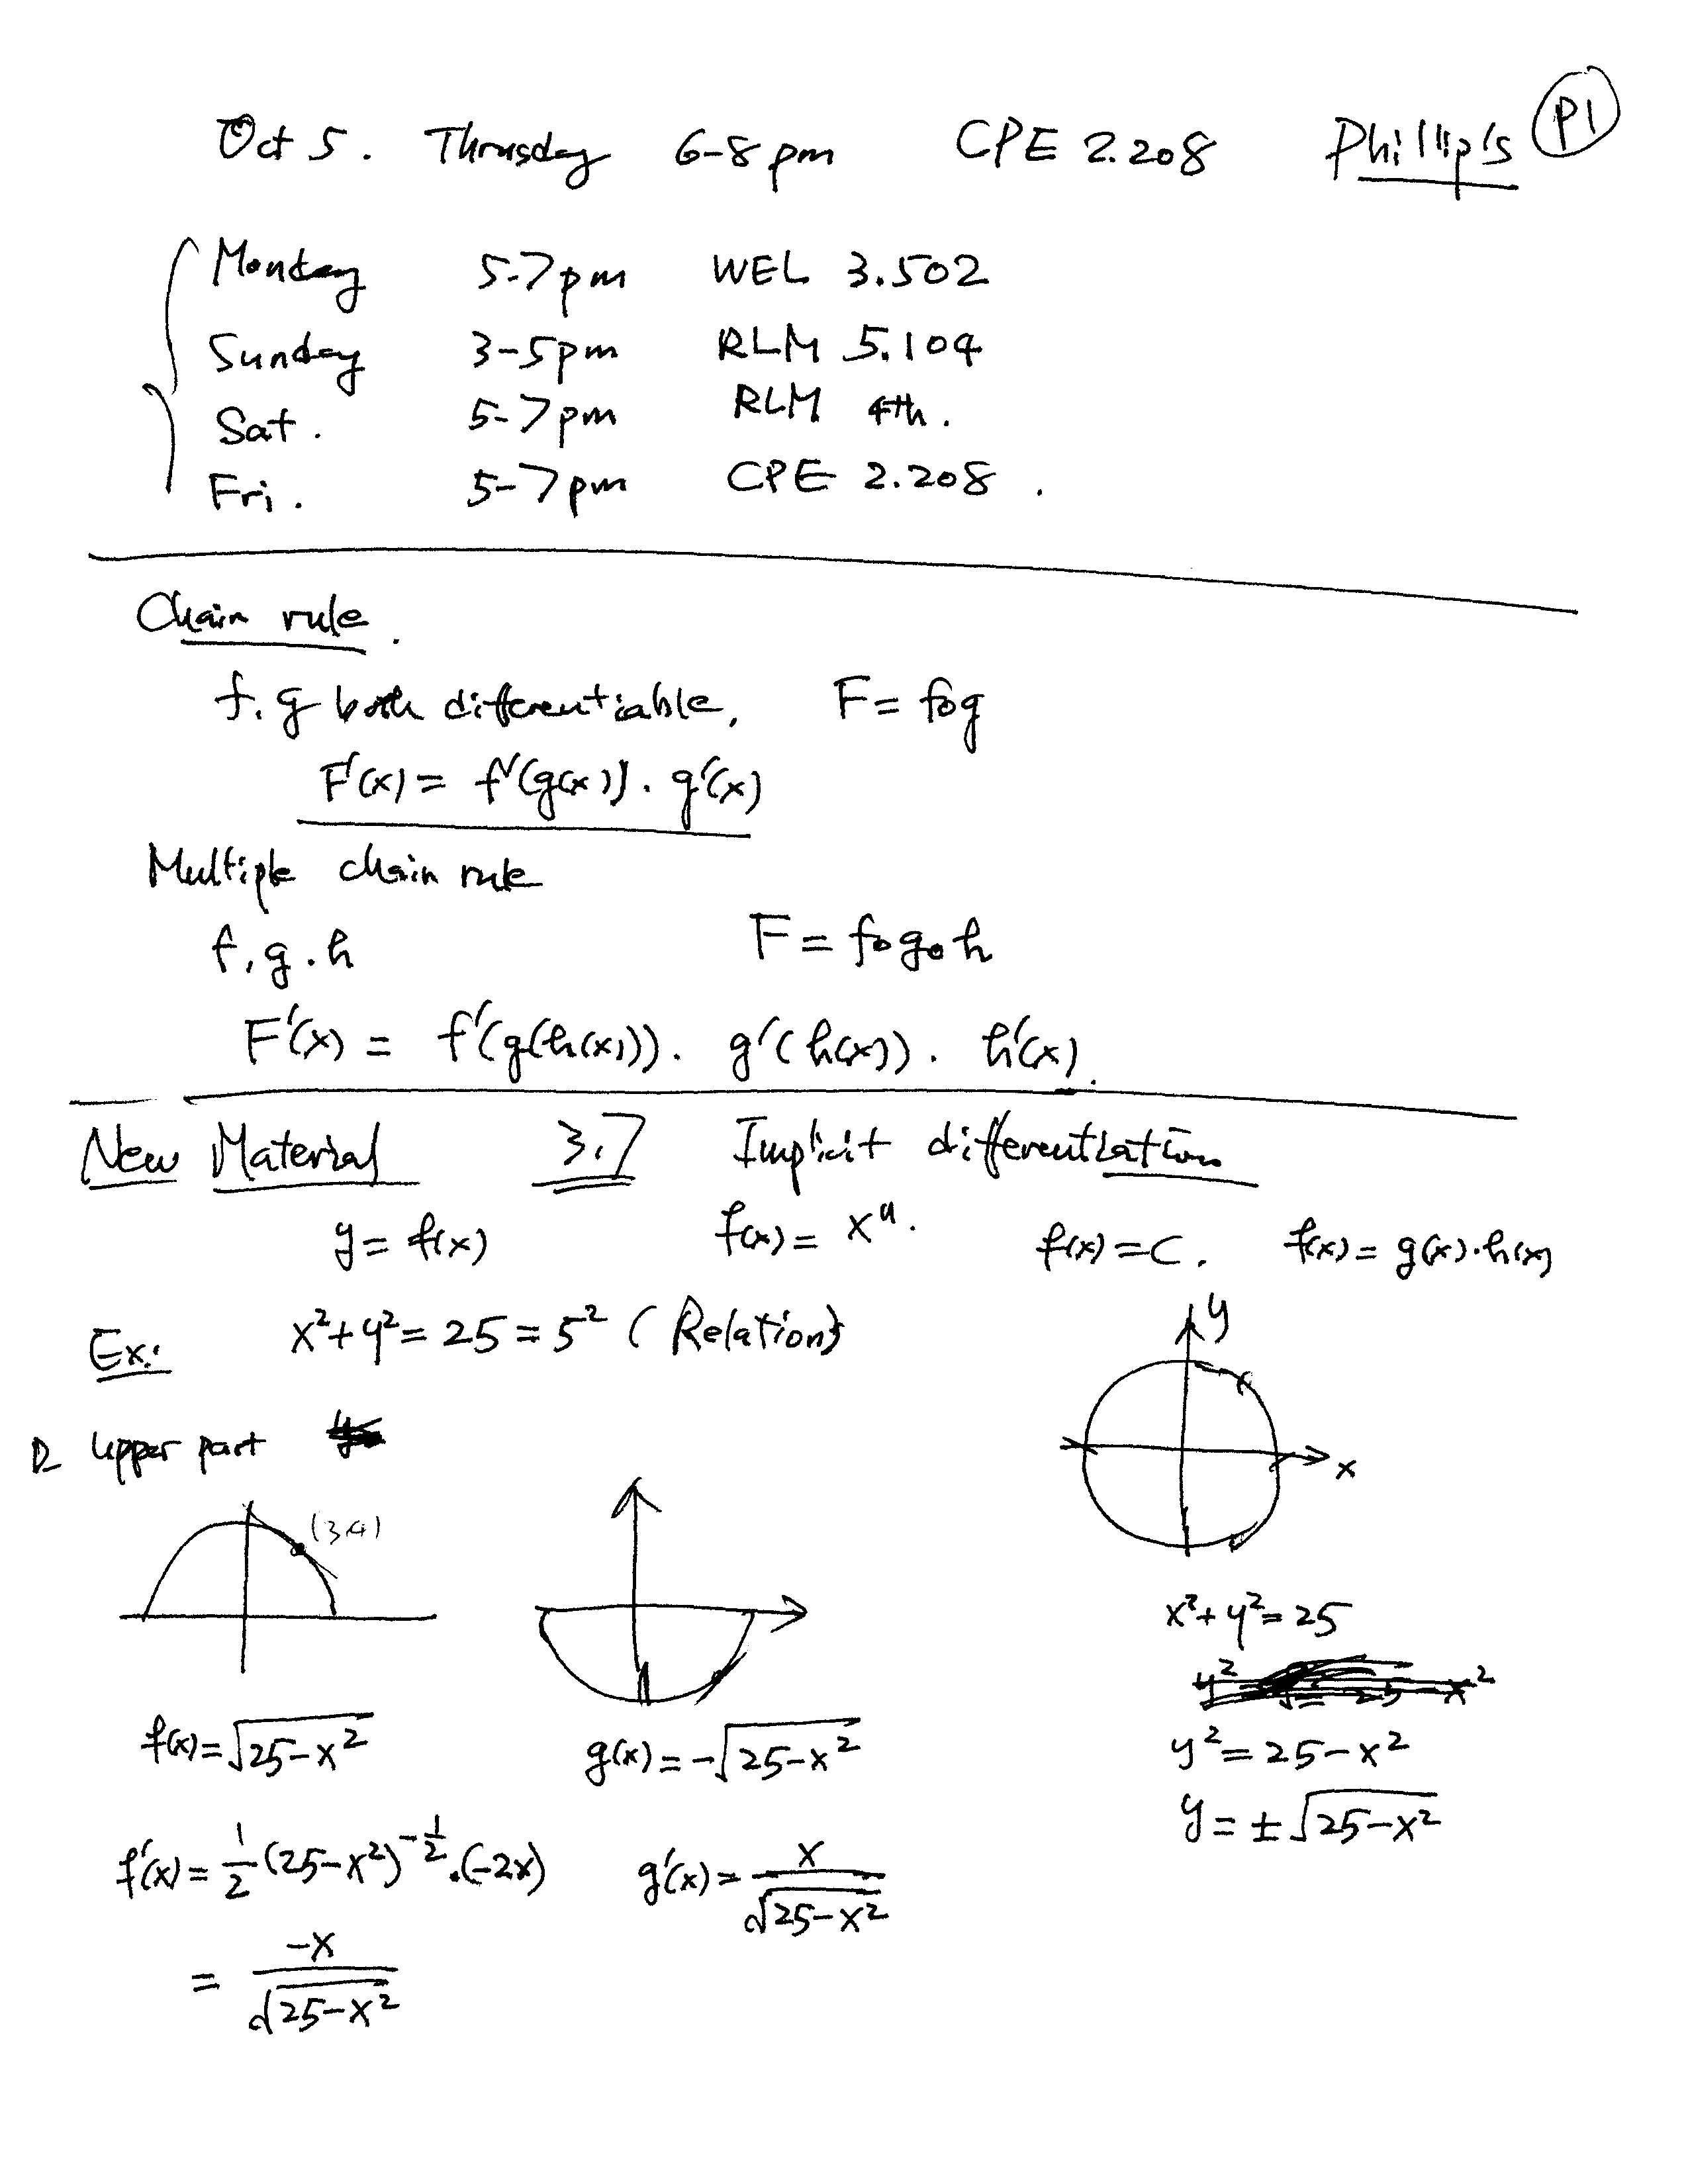 Oct 5. Thrusday 6-8 pm CPE 2.208 Phillip's P1
Monday 5-7 pm WEL 3.502
Sunday 3-5 pm RLM 5.104
Sat. 5-7 pm RLM 4th.
Fri. 5-7 pm CPE 2.208.
Chain rule.
f, g both differentiable, F = f∘g
F'(x) = f'(g(x)) · g'(x)
Multiple chain rule
f, g, h F = f∘g∘h
F'(x) = f'(g(h(x))) · g'(h(x)) · h'(x).
New Material 3.7 Implicit differentiation
y = f(x) f(x) = x⁴. f(x) = C. f(x) = g(x)·h(x)
Ex: x² + y² = 25 = 5² (Relation)
y
x
Upper part
(3,4)
x² + y² = 25
f(x) = √(25-x²) g(x) = -√(25-x²) y² = 25-x²
y = ± √(25-x²)
f'(x) = 1/2 (25-x²)^(-1/2) · (-2x) g'(x) = x/√(25-x²)
= -x/√(25-x²)